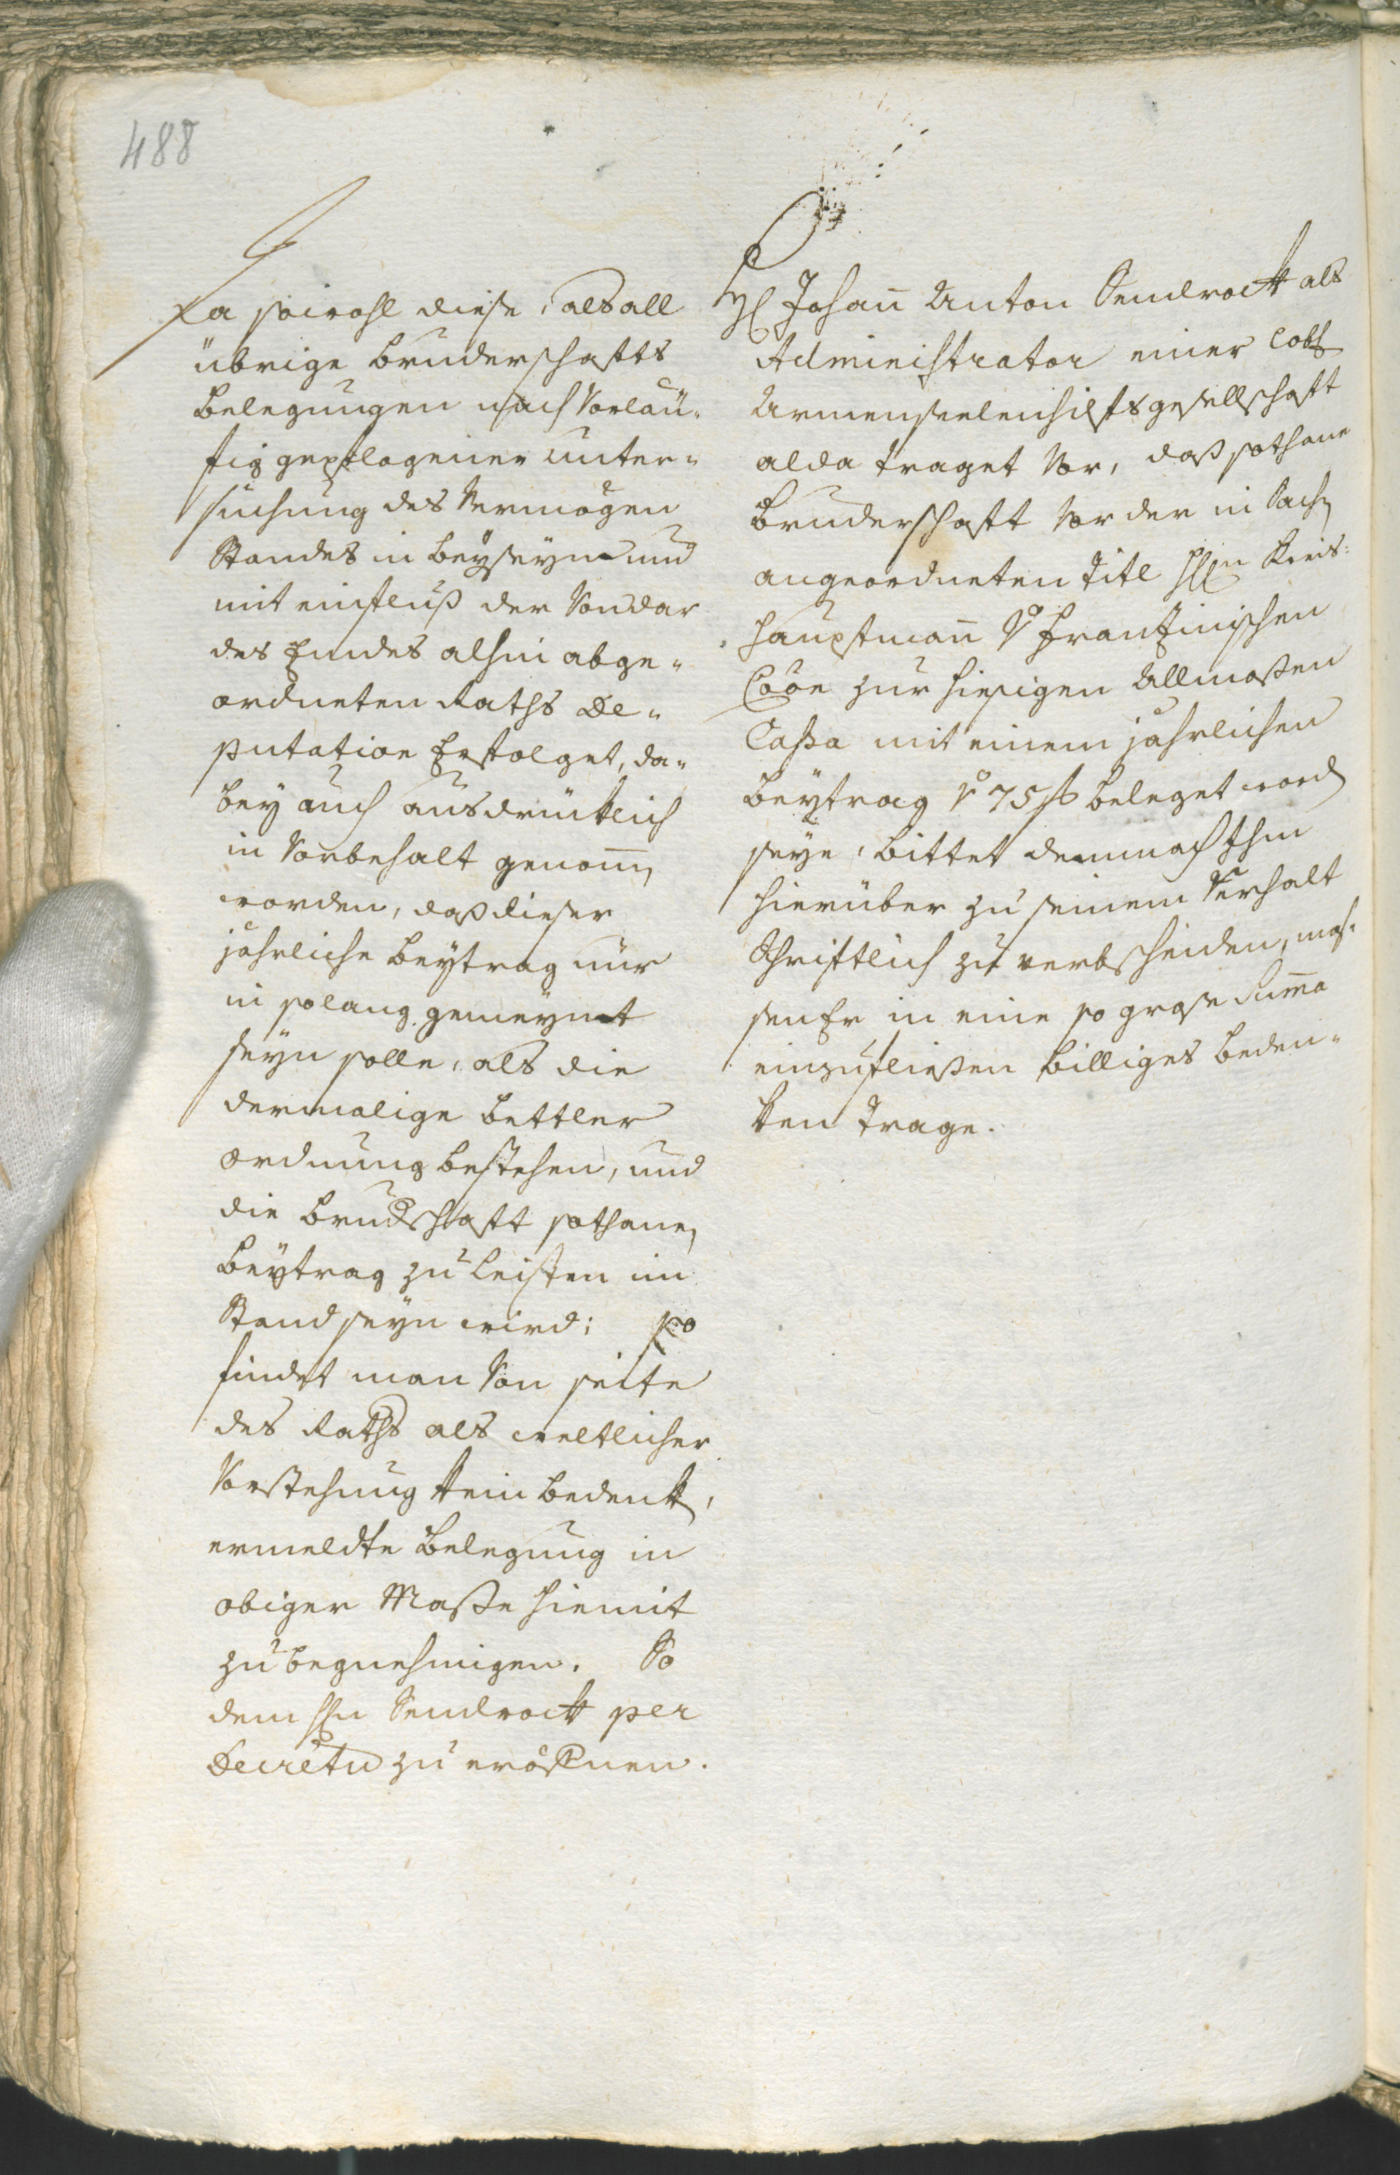 488
Da sowohl diese, als all
übrige Bruderschafts
Belegungen nach Vorläu-
fig gepflogener unter-
suchung des Vermögen
Standes in Beyseyn und
mit einfluß der Von dar
des Endes alhin abge-
ordneten Raths De-
putation Erfolget, da-
bey auch ausdrücklich
in Vorbehalt genom̄en
worden, daß dieser
jährliche Beytrag nur
in solang gemeynet
seyn solle, als die
dermalige Bettler
ordnung bestehen, und
die Brudschafft sothanen
Beytrag zu Leisten im
Stand seyn wird; so
findet man Von seite
des Raths als weltlicher
Vorstehung kein Bedenken,
ermeldte Belegung in
obiger Maße hiemit
zu begnehmigen. So
dem Hn Sendrockh per
Decretu zu eröffnen.
H Johan̄ Anton Sendrockh als
Administrator einer Lobl
Armenseelenhilfsgesellschaft
alda traget Vor, daß sothane
Bruderschaft Von der in Sachen
angeordneten Titl Hen Kreis-
hauptman̄ v Franzinischen
Coon zur hiesigen Allmoßen
Cassa mit einem jährlichen
Beytrag v 75 f beleget worden
seye, bittet demnach Ihm
hierüber zu seinem Verhalt
Schriftlich zu verbscheiden, mas-
sen Er in eine so grose Sum̄a
einzufließen billiges Beden-
ken trage.